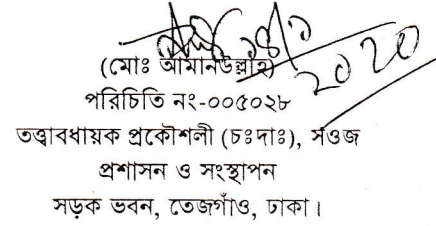 (মোঃ আমানউল্লাহ)
২০২০
পরিচিতি নং-০০৫০২৮
তত্ত্বাবধায়ক প্রকৌশলী (চঃদাঃ), সওজ
প্রশাসন ও সংস্থাপন
সড়ক ভবন, তেজগাঁও, ঢাকা।